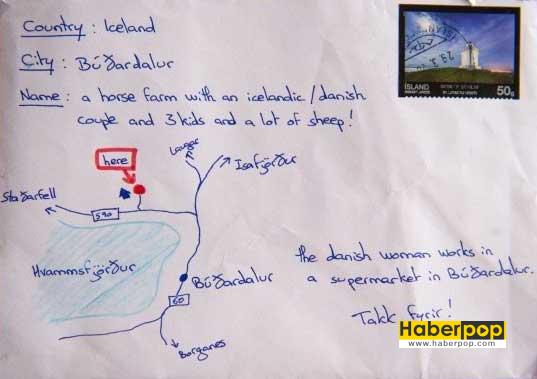 Country : Iceland
City : Búðardalur
Name : a horse farm with an icelandic/danish
couple and 3 kids and a lot of sheep!
ÍSLAND
50g
here
Laugar
Isafjörður
Staðarfell
590
Hvammsfjörður
Búðardalur
60
Borganes
the danish woman works in
a supermarket in Búðardalur.
Takk fyrir!
Haberpop
www.haberpop.com